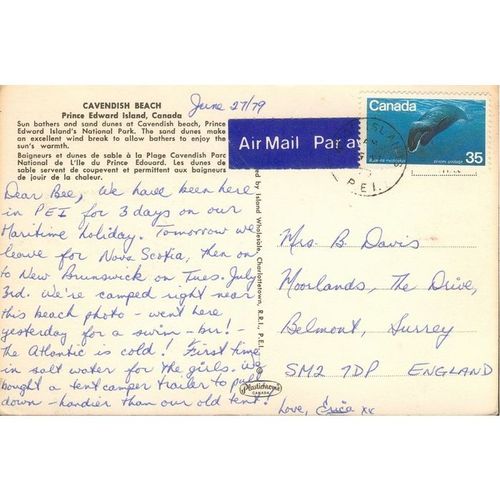 June 27/79
CAVENDISH BEACH
Prince Edward Island, Canada
Sun bathers and sand dunes at Cavendish beach, Prince
Edward Island's National Park. The sand dunes make
an excellent wind break to allow bathers to enjoy the
sun's warmth.
Baigneurs et dunes de sable à la Plage Cavendish Parc
National de L'Ile du Prince Edouard. Les dunes de
sable servent de coupevent et permettent aux baigneurs
de jouir de la chaleur.
Dear Bee, We have been here
in PEI for 3 days on our
Maritime holiday. Tomorrow we
leave for Nova Scotia, then on
to New Brunswick on Tues. July
3rd. We're camped right near
this beach photo - went here
yesterday for a swim - brr! -
the Atlantic is cold! First time
in salt water for the girls. We
bought a tent camper trailer to pull
down - handier than our old tent!
Love, Erica xx
ed by Island Wholesale, Charlottetown, R.R.1., P.E.I.
Plastichrome
CANADA
Air Mail Par av
Canada
35
P.E.I.
Mrs. B. Davis
Moorlands, The Drive,
Belmont, Surrey
SM2 7DP ENGLAND